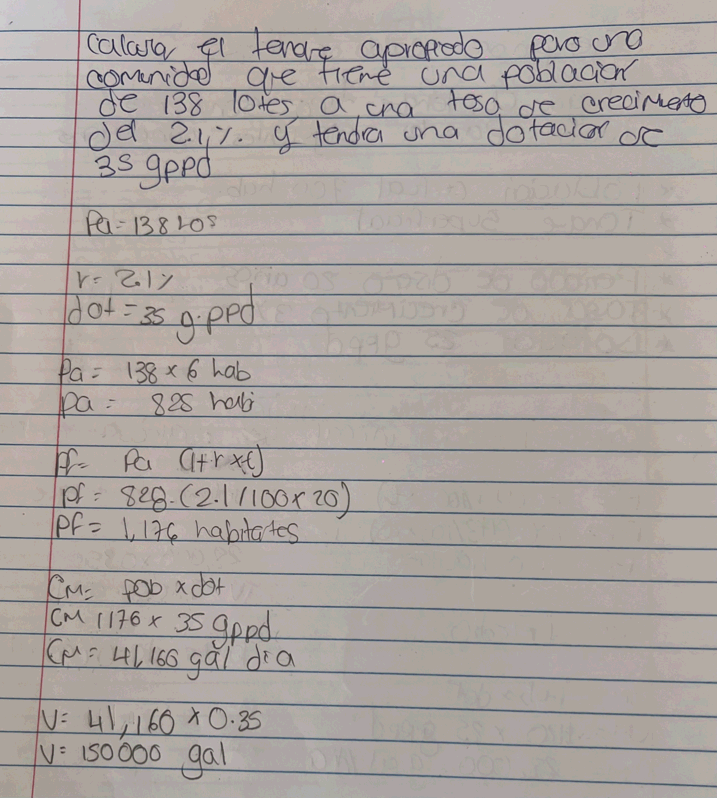 Calcula el tanque apropedo para una
comunidad que tiene una poblacion
de 138 lotes a una tasa de crecimiento
del 2.1%. y tendra una dotacion de
35 gppd
Pa = 138 los
r = 2.1%
dot = 35 g.ppd
Pa = 138 x 6 hab
Pa = 828 habi
Pf = Pa (1+r x t)
Pf = 828.(2.1/100 x 20)
Pf = 1,176 habitates
CM = pob x dot
CM 1176 x 35 gppd
CM = 41,160 gal dia
V = 41,160 x 0.35
V = 150000 gal